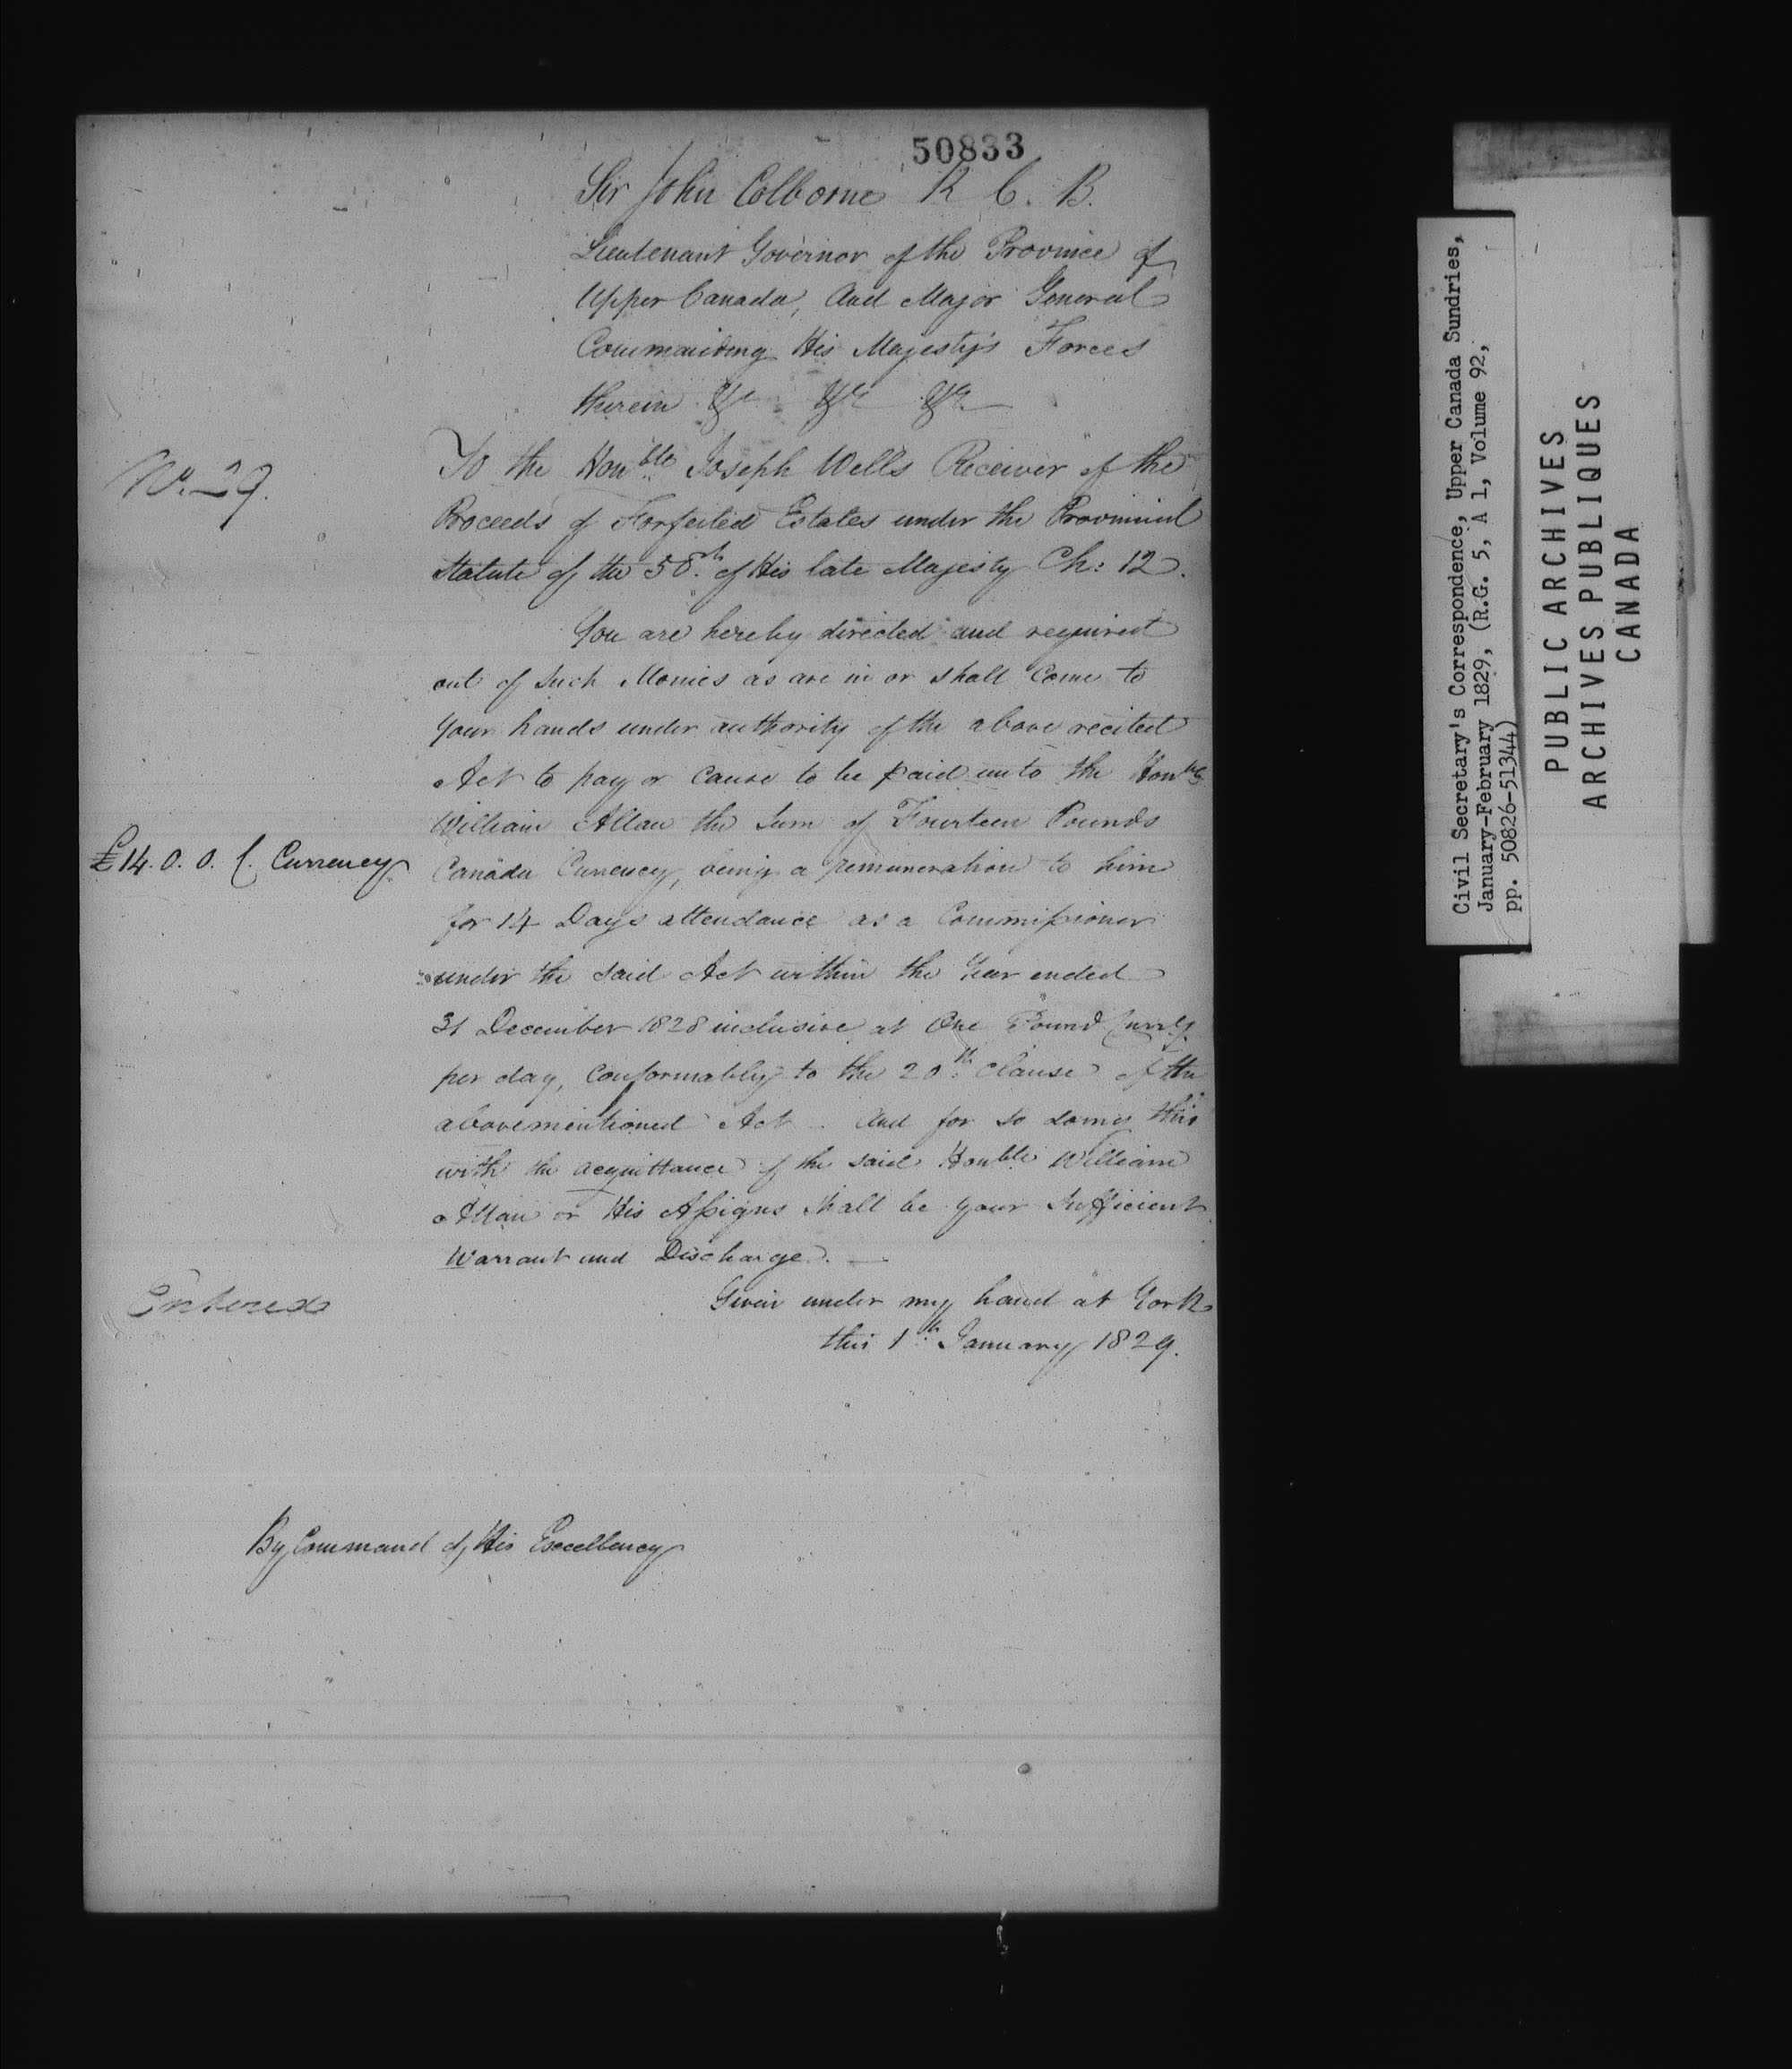 50833
Sir John Colborne K. C. B.
Lieutenant Governor of the Province of
Upper Canada, and Major General
Commanding His Majesty's Forces
therein &c &c &c.
No. 29.
To the Honble Joseph Wells Receiver of the
Proceeds of Forfeited Estates under the Provincial
Statute of the 58.th of His late Majesty Ch: 12.
You are hereby directed and required
out of Such Monies as are in or shall come to
your hands under authority of the above recited
Act to pay or cause to be paid unto the Honble
William Allan the Sum of Fourteen Pounds
£14. 0. 0. C. Currency
Canada Currency, being a remuneration to him
for 14 Days attendance as a Commissioner
under the said Act within the Year ended
31 December 1828 inclusive at One Pound Curry
per day, Conformably to the 20th Clause of the
abovementioned Act - And for so doing this
with the acquittance of the said Honble William
Allan or His Assigns shall be your Sufficient
Warrant and Discharge. —
Entered
Given under my hand at York
this 1th January 1829.
By Command of His Excellency
Civil Secretary's Correspondence, Upper Canada Sundries,
January-February 1829, (R.G. 5, A 1, Volume 92,
pp. 50826-51344)
PUBLIC ARCHIVES
ARCHIVES PUBLIQUES
CANADA